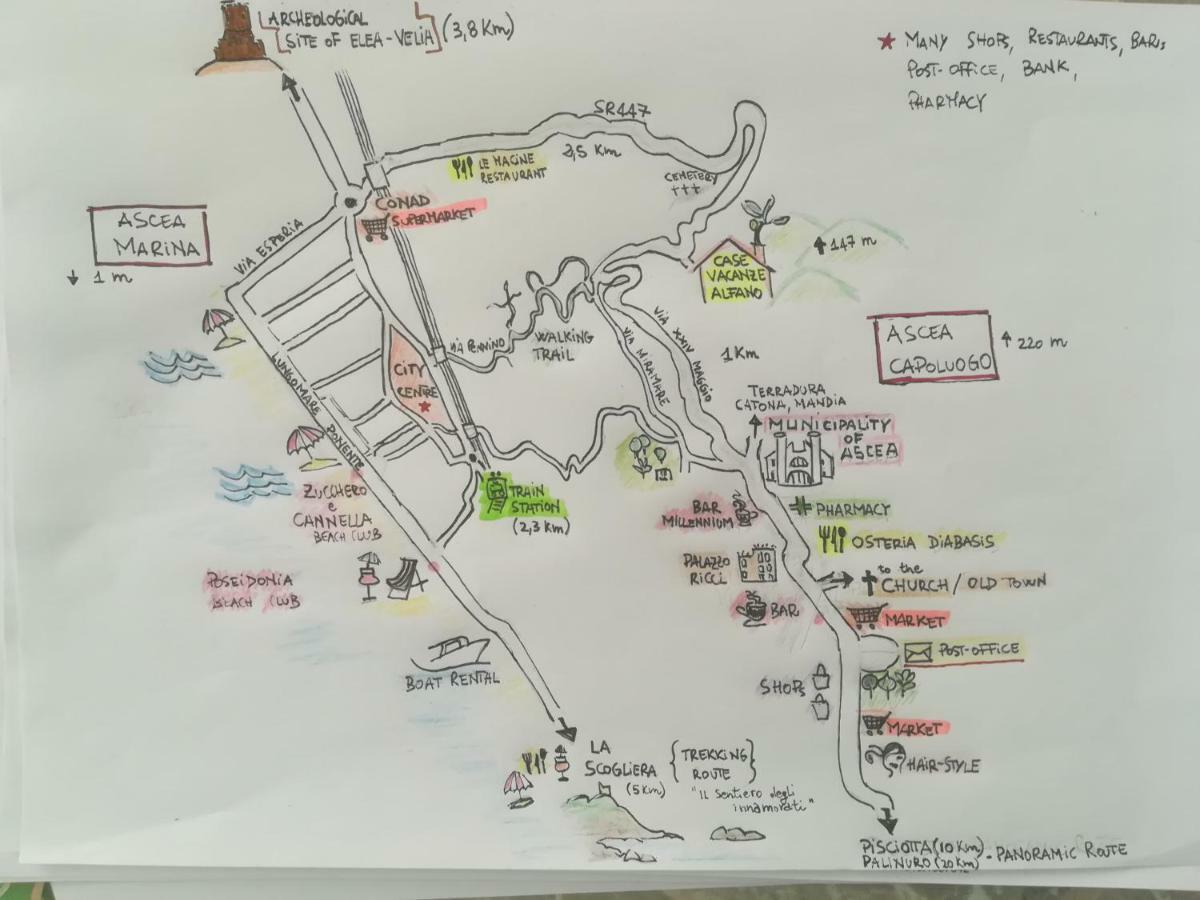 ARCHEOLOGICAL
SITE OF ELEA-VELIA (3,8 Km)
★ MANY SHOPS, RESTAURANTS, BARS,
POST-OFFICE, BANK,
PHARMACY
SR447
2,5 Km
LE MACINE
RESTAURANT
CEMETERY
†††
CONAD
SUPERMARKET
ASCEA
MARINA
↓ 1 m
VIA ESPERIA
↑ 147 m
CASE
VACANZE
ALFANO
ASCEA
CAPOLUOGO
↑ 220 m
WALKING
TRAIL
VIA PENNINO
VIA MIRAMARE
VIA XXIV MAGGIO
1 Km
LUNGOMARE PONENTE
CITY
CENTRE
★
TERRADURA
CATONA, MANDIA
MUNICIPALITY
OF
ASCEA
TRAIN
STATION
(2,3 Km)
ZUCCHERO
e
CANNELLA
BEACH CLUB
BAR
MILLENNIUM
PHARMACY
OSTERIA DIABASIS
PALAZZO
RICCI
to the
CHURCH / OLD TOWN
POSEIDONIA
BEACH CLUB
BAR
MARKET
POST-OFFICE
BOAT RENTAL
SHOPS
MARKET
HAIR-STYLE
LA
SCOGLIERA
(5 Km)
{TREKKING
ROUTE}
"IL Sentiero degli
innamorati"
PISCIOTTA (10 Km)
PALINURO (20 Km) - PANORAMIC ROUTE